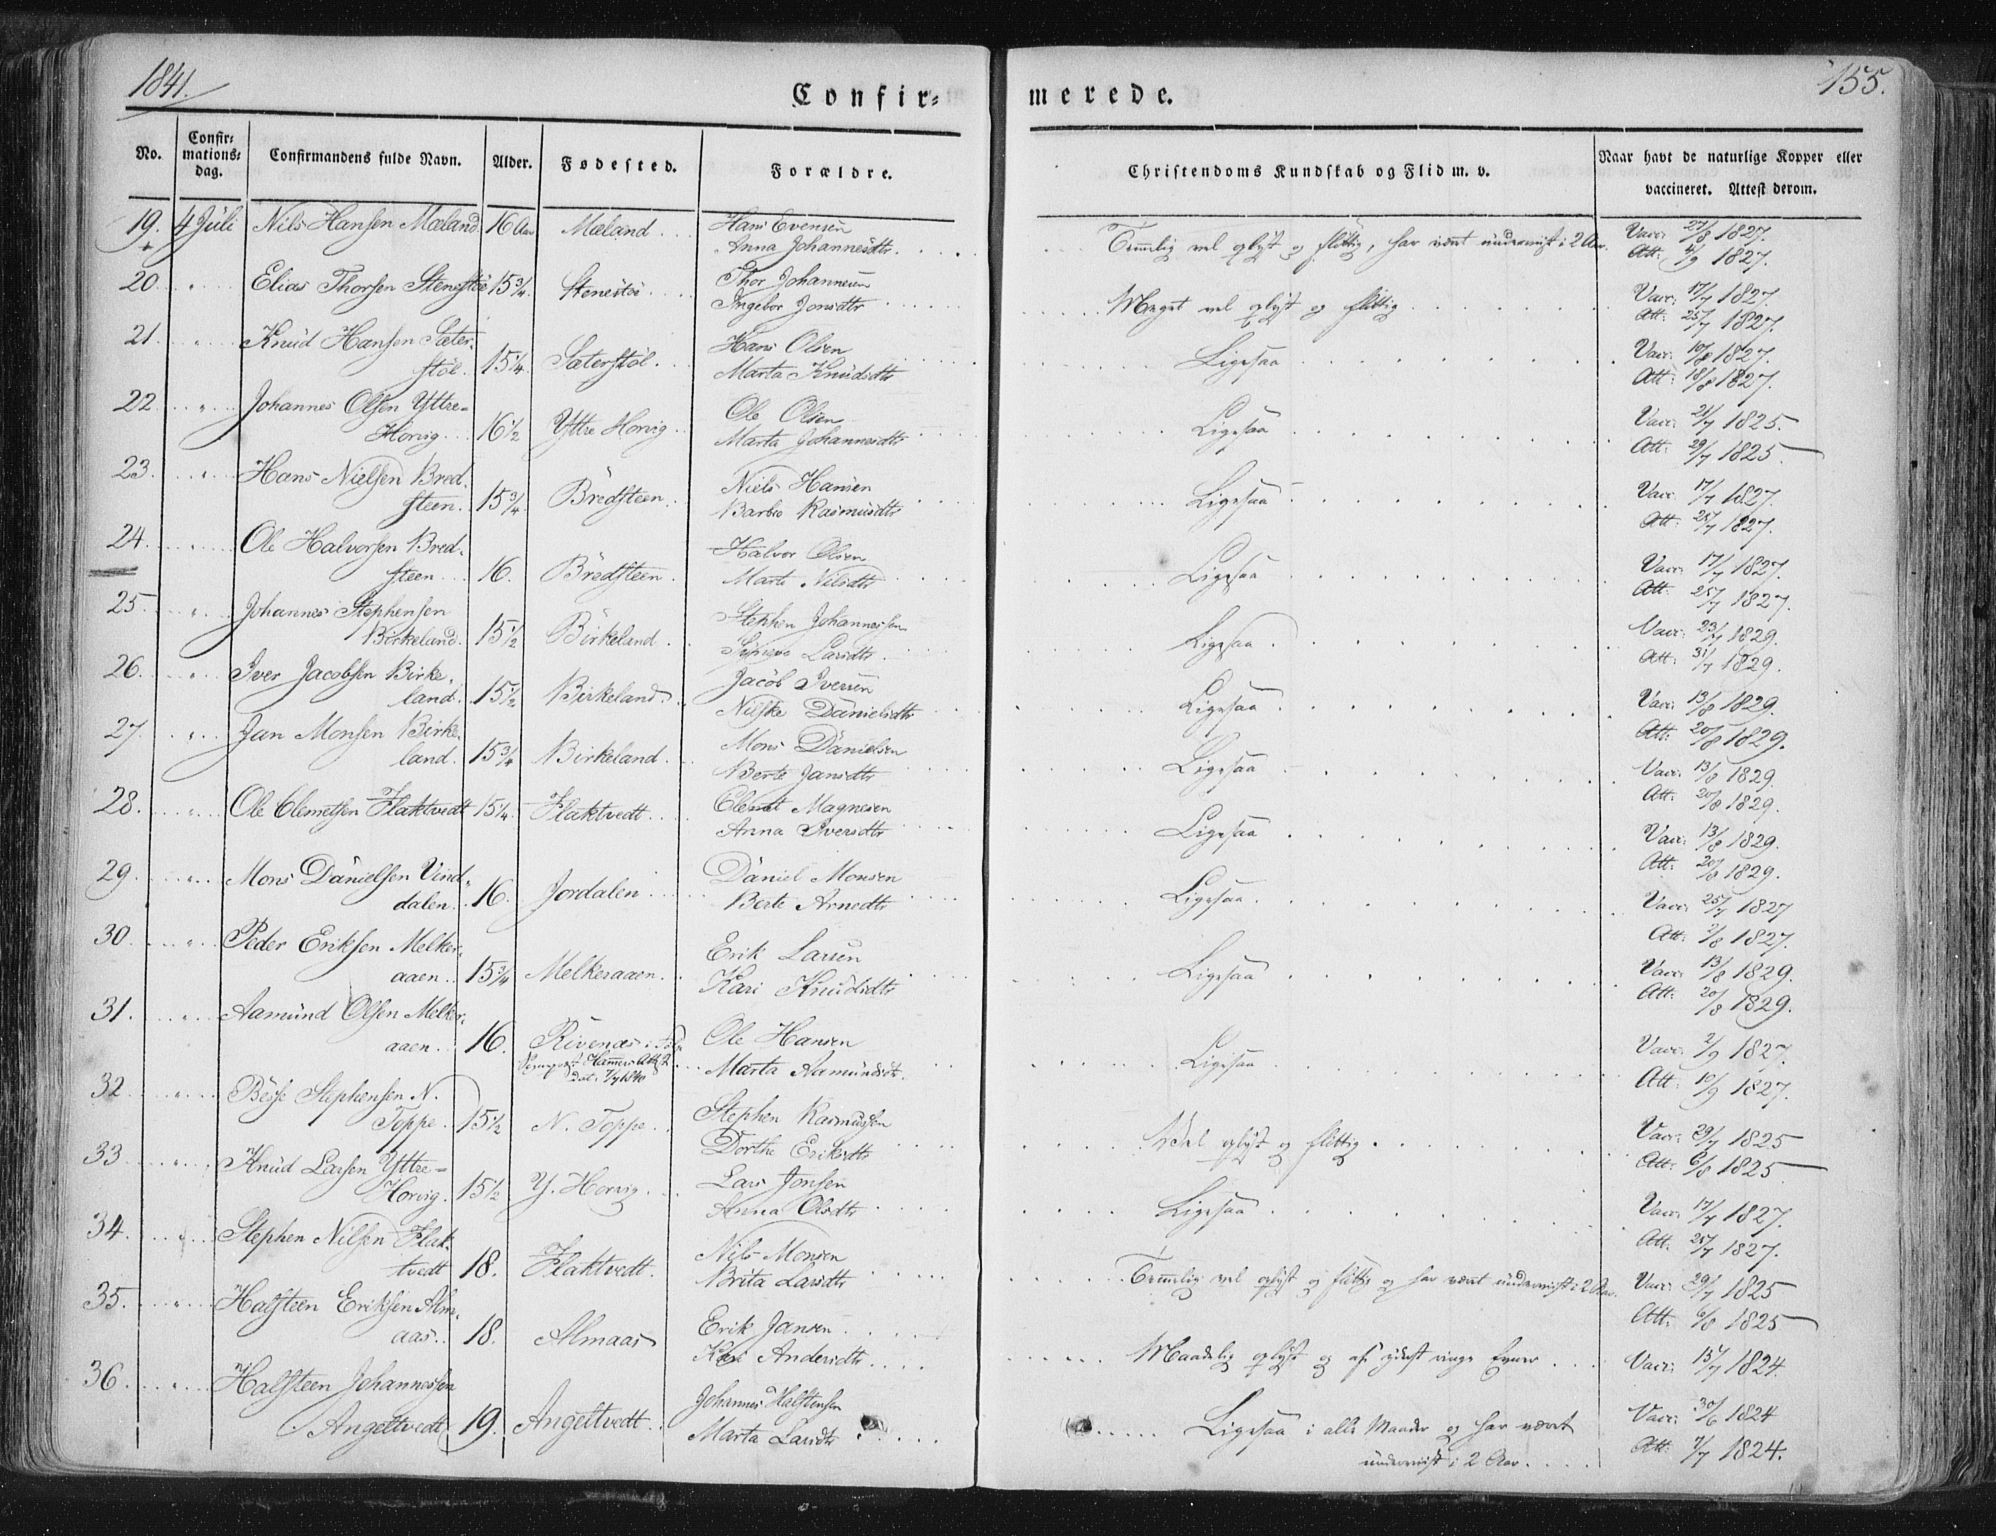 1841.
Confir=
merede.
155.
No.
Confir=
mations=
dag.
Confirmandens fulde Navn.
Alder.
Fødested.
Forældre.
Christendoms Kundskab og Flid m. v.
Naar havt de naturlige Kopper eller
vaccineret. Attest derom.
19. 4 Juli Nils Hansen Mæland 16 Aar Mæland Hans Evensen
Anna Johannesdtr
Temmelig vel oplyst og flittig, har været underviist i 2 Aar.
Vacc: 27/8 1827.
Att: 4/9 1827.
20 " Elias Thorsen Stenestöe 15 3/4 Stenestöe Thor Johannesen
Ingebor Jonsdtr
Meget vel oplyst og flittig
Vacc: 17/7 1827.
Att: 25/7 1827.
21 " Knud Hansen Sæter=
stöl. 15 1/4 Sæterstöl. Hans Olsen
Marta Knudsdtr
Ligesaa
Vacc: 10/8 1827.
Att: 18/8 1827.
22 " Johannes Olsen Yttre=
Horvig 16 1/2 Yttre Horvig Ole Olsen
Marta Johannesdtr
Ligesaa
Vacc: 21/7 1825.
Att: 29/7 1825
23. " Hans Nielsen Bred=
steen. 15 3/4 Bredsteen Niels Hansen
Barbro Rasmusdtr
Ligesaa
Vacc: 17/7 1827.
Att: 25/7 1827.
24. " Ole Halvorsen Bred=
steen 16. Bredsteen. Halvor Olsen
Marte Nilsdtr
Ligesaa
Vacc: 17/7 1827.
Att: 25/7 1827.
25. " Johannes Stephensen
Birkeland. 15 1/2 Birkeland Stephen Johannessen
Larsdtr
Ligesaa
Vacc: 23/7 1829.
Att: 31/7 1829.
26. " Iver Jacobsen Birke=
land. 15 1/2 Birkeland Jacob Iversen
Nilske Danielsdtr
Ligesaa
Vacc: 13/8 1829.
Att: 20/8 1829.
27. " Jan Monsen Birke=
land. 15 3/4 Birkeland. Mons Danielsen
Berte Jansdtr
Ligesaa
Vacc: 13/8 1829
Att: 20/8 1829.
28. " Ole Clemetsen Flaktvedt 15 1/4. Flaktvedt Clemet Magnesen
Anna Iversdtr
Ligesaa
Vacc: 13/8 1829.
Att: 20/8 1829.
29. " Mons Danielsen Vind=
dalen. 16. Jordalen Daniel Monsen
Berte Arnedtr
Ligesaa
Vacc: 25/7 1827
Att: 2/8 1827.
30. " Peder Eriksen Melker=
aaen. 15 3/4 Melkeraaen. Erik Larsen
Kari Knudsdtr
Ligesaa
Vacc: 13/8 1829.
Att: 20/8 1829.
31. " Aamund Olsen Melker=
aaen. 16. Rivenæs i
Hammers Att:
dat: 1840
Ole Hansen
Marta Aamundsdtr.
Ligesaa
Vacc: 2/9 1827.
Att: 10/9 1827.
32 " Stephensen N.
Toppe. 15 1/2 N. Toppe. Stephen Rasmussen
Dorthe Eriksdtr
Vel oplyst og flittig.
Vacc: 29/7 1825
Att: 6/8 1825
33 " Knud Larsen Yttre=
Horvig. 15 1/2 Y. Horvig. Lars Jonsen
Anna Olsdtr
Ligesaa
Vacc: 17/7 1827.
Att: 25/7 1827.
34. " Stephen Nilsen Flak=
tvedt 18. Flaktvedt. Nils Monsen
Brita Larsdtr
Temmelig vel oplyst og flittig og har været underviist i 2 Aar.
Vacc: 29/7 1825
Att: 6/8 1825
35. " Halsteen Eriksen Alm=
aas. 18. Almaas Erik Jansen
Kari Andersdtr
Maadelig oplyst og af ydest ringe Evner
Vacc: 15/7 1824.
36 " Halsteen Johannessen
Angeltvedt 19. Angeltvedt. Johannes Halstensen
Marta Larsdtr
Ligesaa i alle Maader og har været
underviist i 2 Aar.
Vacc: 30/6 1824
Att: 7/7 1824.